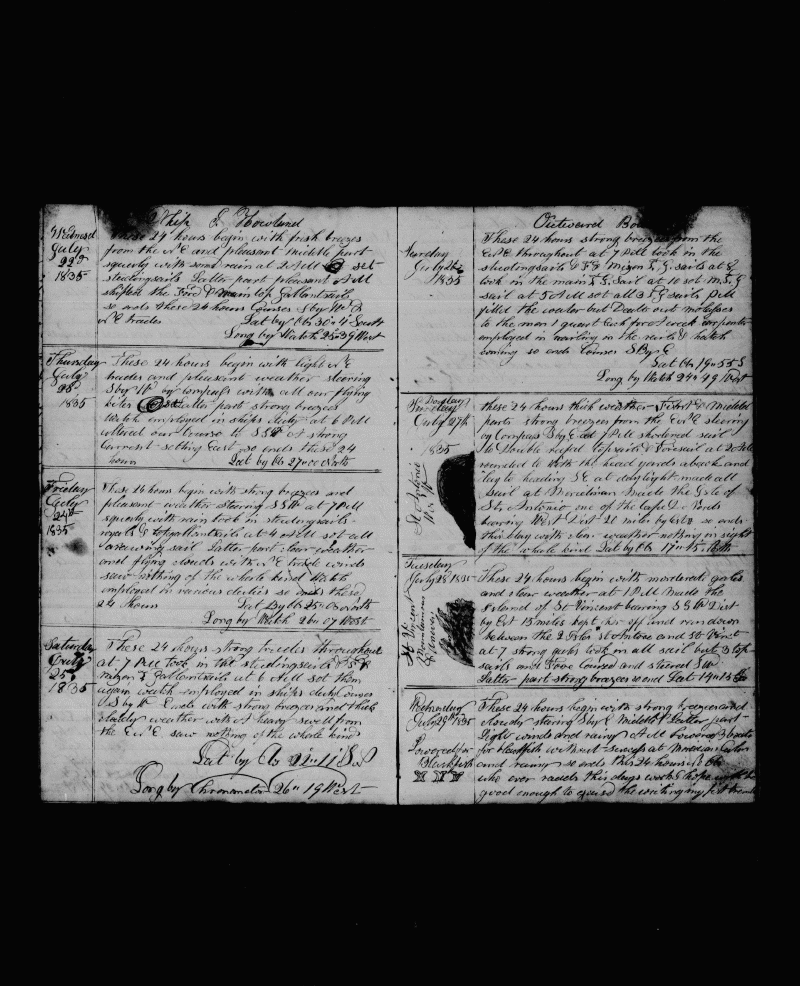 Ship E Howland
Wednesd
July
22d
1835
These 24 hours begin with fresh breezes
from the N E and pleasant middle part
squaly with some rain at 2 AM set
studingsails Latter part pleasant AM
shifted the Ford & main top Gallantsails
so ends these 24 hours Courses S by W
N E trades Lat by Obs 30=4 South
Long by Watch 25=39 West
Thursday
July
23d
1835
These 24 hours begin with light N E
trades and pleasant weather steering
S by W by compass with all our flying
kites Latter part strong breezes
Watch employed in ships duty at 6 AM
altered our Course to SSW A strong
Current setting East so ends these 24
hours Lat by Obs 27=00 North
Friday
July
24th
1835
These 24 hours begin with strong breezes and
pleasant weather steering SSW at 7 PM
squaly with rain took in studingsails
royals & topgallantsails at 4 AM set all
drawing sail Latter part clear weather
and flying clouds with N E trade winds
saw nothing of the whale kind Watch
employed in various duties so ends these
24 hours Lat by Obs 25=0 North
Long by Watch 26=07 West
Saturday
July
25
1835
These 24 hours strong trades throughout
at 7 PM took in the studingsails
mizen T Gallantsails at 6 AM set them
again watch employed in ships duty
S by W Ends with strong breezes and thick
weather with A heavy swell from
the E N E saw nothing of the whale kind
Lat by Obs
Long by Chronometer 26=19 West
Outward Bou
Sunday
July 26
1835
These 24 hours strong breezes from the
E N E throughout at 7 PM took in the
studingsails & Mizen T G sails at 8
took in the main T G Sail at 10 set M T G
sail at 5 AM set all 3 T G sails PM
filled the water but Dealt out molasses
to the men 1 quart Each for week carpenter
employed in nailing in the hatch
coming so ends Courses S By E
Lat Obs 19=55
Long by Watch 24=49 West
Monday
July 27th
1835
St Antonio
these 24 hours thick weather First & Middle
parts strong breezes from the E N E steering
by Compass S by E at 7 PM shortened sail
to Double reefed topsails & Foresail at 2 AM
rounded to with the head yards aback and
lay to heading S E at daylight made all
sail at Meridian Made the Isle of
St Antonio one of the Cape D Verds
bearing West Dist 21 miles by Est so ends
this day with clear weather nothing in sight
of the whale kind Lat by Obs 17=45 North
Tuesday
July 28 1835
St Vincent
These 24 hours begin with moderate gales
and clear weather at 1 PM Made the
Island of St Vincent bearing SSW Dist
by Est 15 miles kept her off and run down
between the 2 Isles St Antone and St Vinct
at 7 strong gales took in all sail but 3 top
sails and Fore Coursed and steered S W
Latter part strong breezes so end Lat 14=15
Wednesday
July 29th 1835
Lowered for
Blackfish
These 24 hours begin with strong breezes and
cloudy stering S by E Middle & Latter part
Light winds and rainy AM lowered 3 boats
for blackfish without sucsess at Meridian
and rainy so ends this 24 hours No Obs
who ever reads this days work I hope with be
good enough to excuse the writing my first